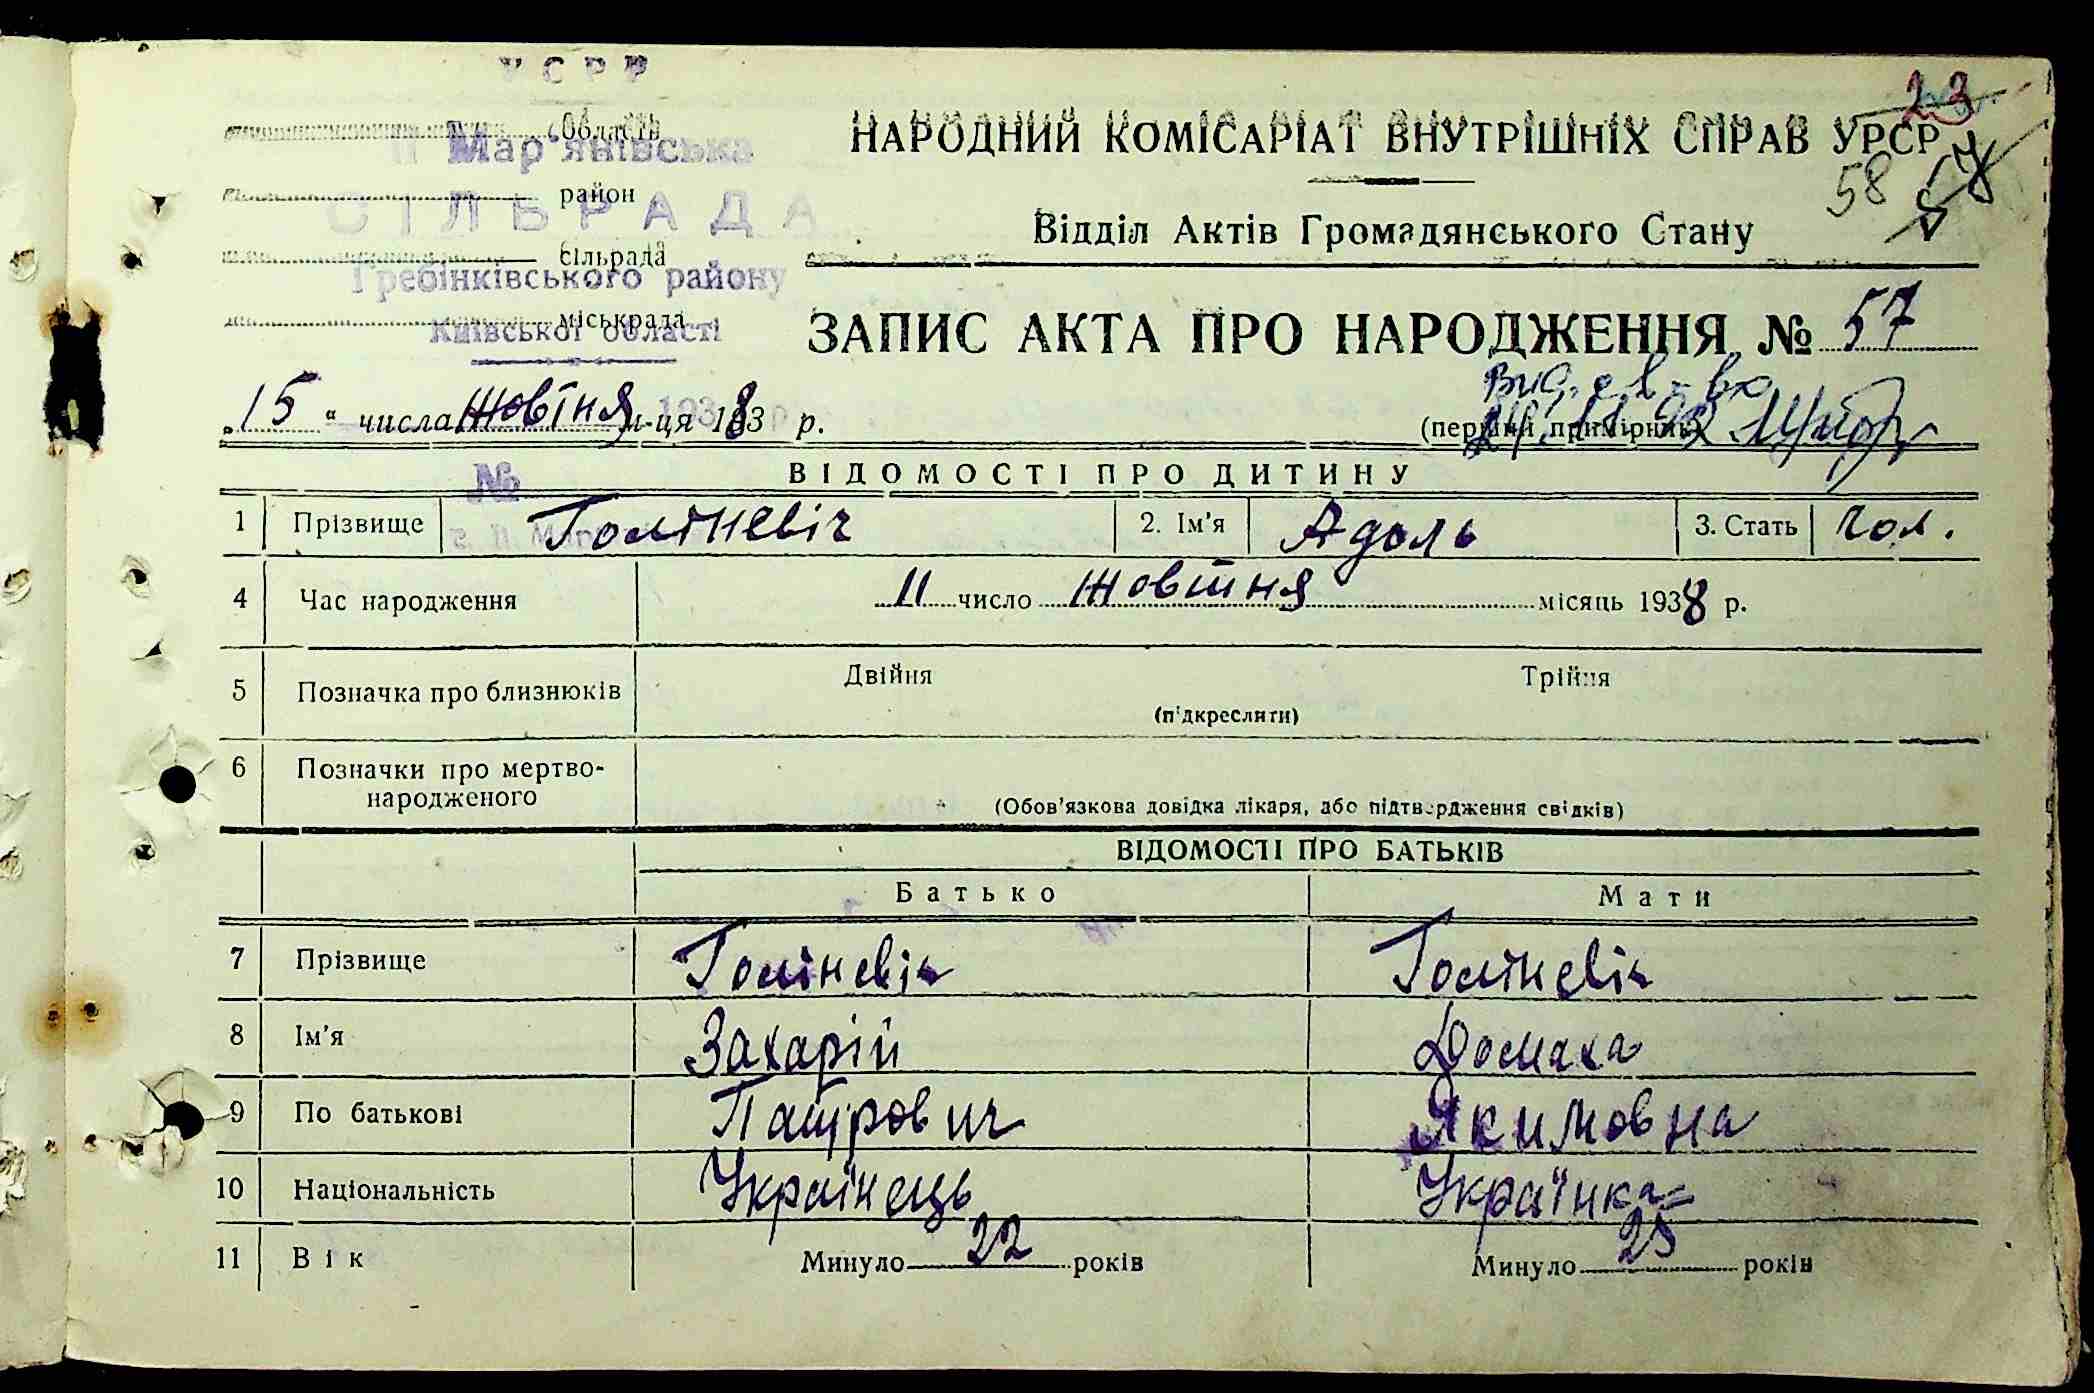 УСРР
Область
II Мар'янівська
район
СІЛЬРАДА
сільрада
Гребінківського району
міськрада
Київської області
НАРОДНИЙ КОМІСАРІАТ ВНУТРІШНІХ СПРАВ УРСР
23
58
57
Відділ Актів Громадянського Стану
ЗАПИС АКТА ПРО НАРОДЖЕННЯ № 57
„15“ числа Жовтня м-ця 1938 р.
(перший примірник)
№
ВІДОМОСТІ ПРО ДИТИНУ
1 Прізвище Голіневіч 2. Ім'я Адоль 3. Стать Чол.
4 Час народження 11 число Жовтня місяць 1938 р.
5 Позначка про близнюків Двійня Трійня
(підкреслити)
6 Позначки про мертво-
народженого
(Обов'язкова довідка лікаря, або підтвердження свідків)
ВІДОМОСТІ ПРО БАТЬКІВ
Батько Мати
7 Прізвище Голіневіч Голіневіч
8 Ім'я Захарій Домаха
9 По батькові Патрович Якимовна
10 Національність Українець Українка
11 Вік Минуло 22 років Минуло 25 років